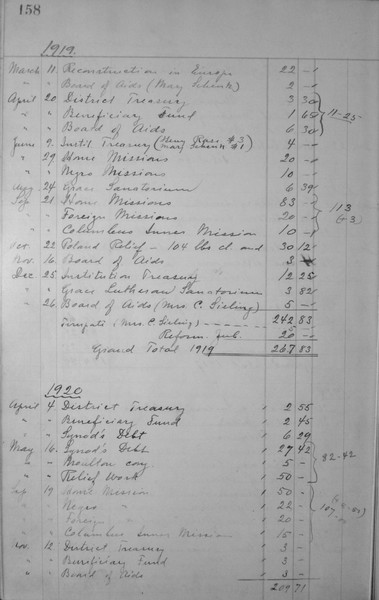 158
1919.
March 11. Reconstruction in Europe 22 —
" " Board of Aids (May Schenk) 2 —
April 20. District Treasury 3 30
" " Beneficiary Fund 1 65
" " Board of Aids 6 30
11-25
June 9. Instit. Treasury 4 —
" 29. Home Missions 20 —
" " Negro Missions 10 —
Aug 24. Grace Sanatorium 6 39
Sep 21. Home Missions 83 —
" " Foreign Missions 20 —
" " Columbus Inner Mission 10 —
113
Nov. 22 Poland Relief — 104 lbs cl. and 30 12
Nov. 16 Board of Aids 3
Dec 25 Institution Treasury 12 25
" " Grace Lutheran Sanatorium 3 82
" 26. Board of Aids (Mrs. C. Sieling) 5 —
242 83
(Mrs. C. Sieling) 5 —
Reform. Jub. 20 —
Grand Total 1919 267 83
1920
April 4. District Treasury 2 55
" " Beneficiary Fund 2 45
" " Synod's Debt 6 29
May 16. Synod's Debt 27 42
" " Moulton cong. 5 —
" " Relief Work 50 —
82-42
Sep 19 Home Mission 50 —
" " Negro " 22 —
" " Foreign " 20 —
" " Columbus Inner Mission 15 —
107
Nov. 12. District Treasury 3 —
" " Beneficiary Fund 3 —
" " Board of Aids 3 —
209 71